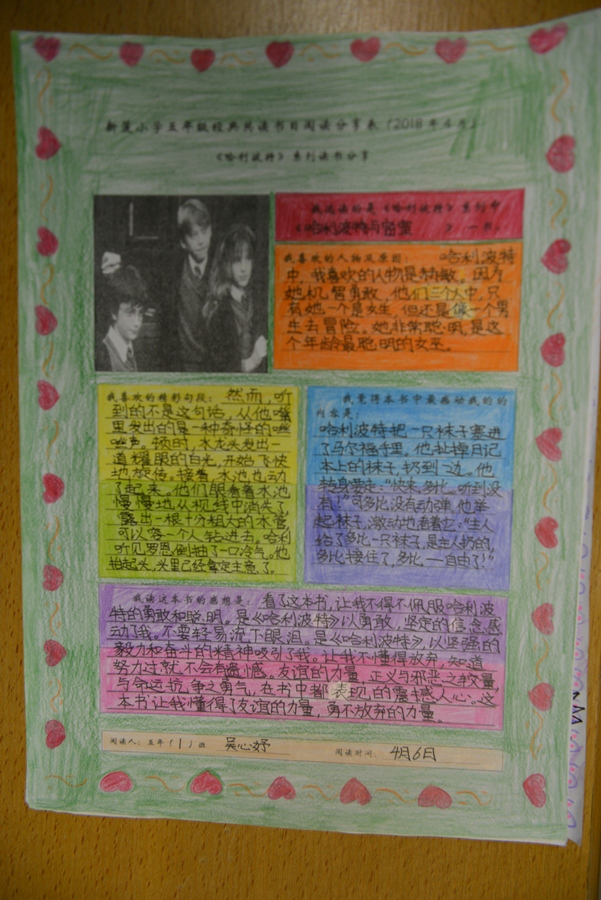 新莲小学五年级经典共读书目阅读分享表(2018年4月)
《哈利波特》系列读书分享
我选读的是《哈利波特》系列中
《哈利波特与密室 》一书。
我喜欢的人物及原因: 哈利波特
中,我喜欢的人物是赫敏。因为
她机智勇敢,他们三个人中,只
有她一个是女生,但还是像一个男
生去冒险。她非常聪明,是这
个年龄最聪明的女巫。
我喜欢的精彩句段: 然而,听
到的不是这句话,从他嘴
里发出的是一种奇怪的咝
咝声。顿时,水龙头发出一
道耀眼的白光,开始飞快
地旋转。接着,水池也动
了起来。他们眼看着水池
慢慢地从视线中消失了
露出一根十分粗大的水管
可以容一个人钻进去。哈利
听见罗恩倒抽了一口冷气。他
抬起头,头里已经拿定主意了。
我觉得本书中最感动我的的
内容是:
哈利波特把一只袜子塞进
了马尔福手里,他扯掉日记
本上的袜子,扔到一边。他
转身要走:“快来,多比。听到没
有!”可多比没有动弹,他举
起袜子,激动地看着它:“主人
给了多比一只袜子,是主人扔的,
多比接住了,多比——自由了!”
我读这本书的感想是: 看了这本书,让我不得不佩服哈利波
特的勇敢和聪明。是《哈利波特》以勇敢,坚定的信念感
动了我。不要轻易流下眼泪,是《哈利波特》,以坚强的
毅力和奋斗的精神吸引了我。让我不懂得放弃,知道
努力过就不会有遗憾。友谊的力量,正义与邪恶之较量,
与命运抗争之勇气,在书中都表现的震撼人心。这
本书让我懂得了友谊的力量,勇不放弃的力量。
阅读人:五年(1)班 吴心妤 阅读时间: 4月6日